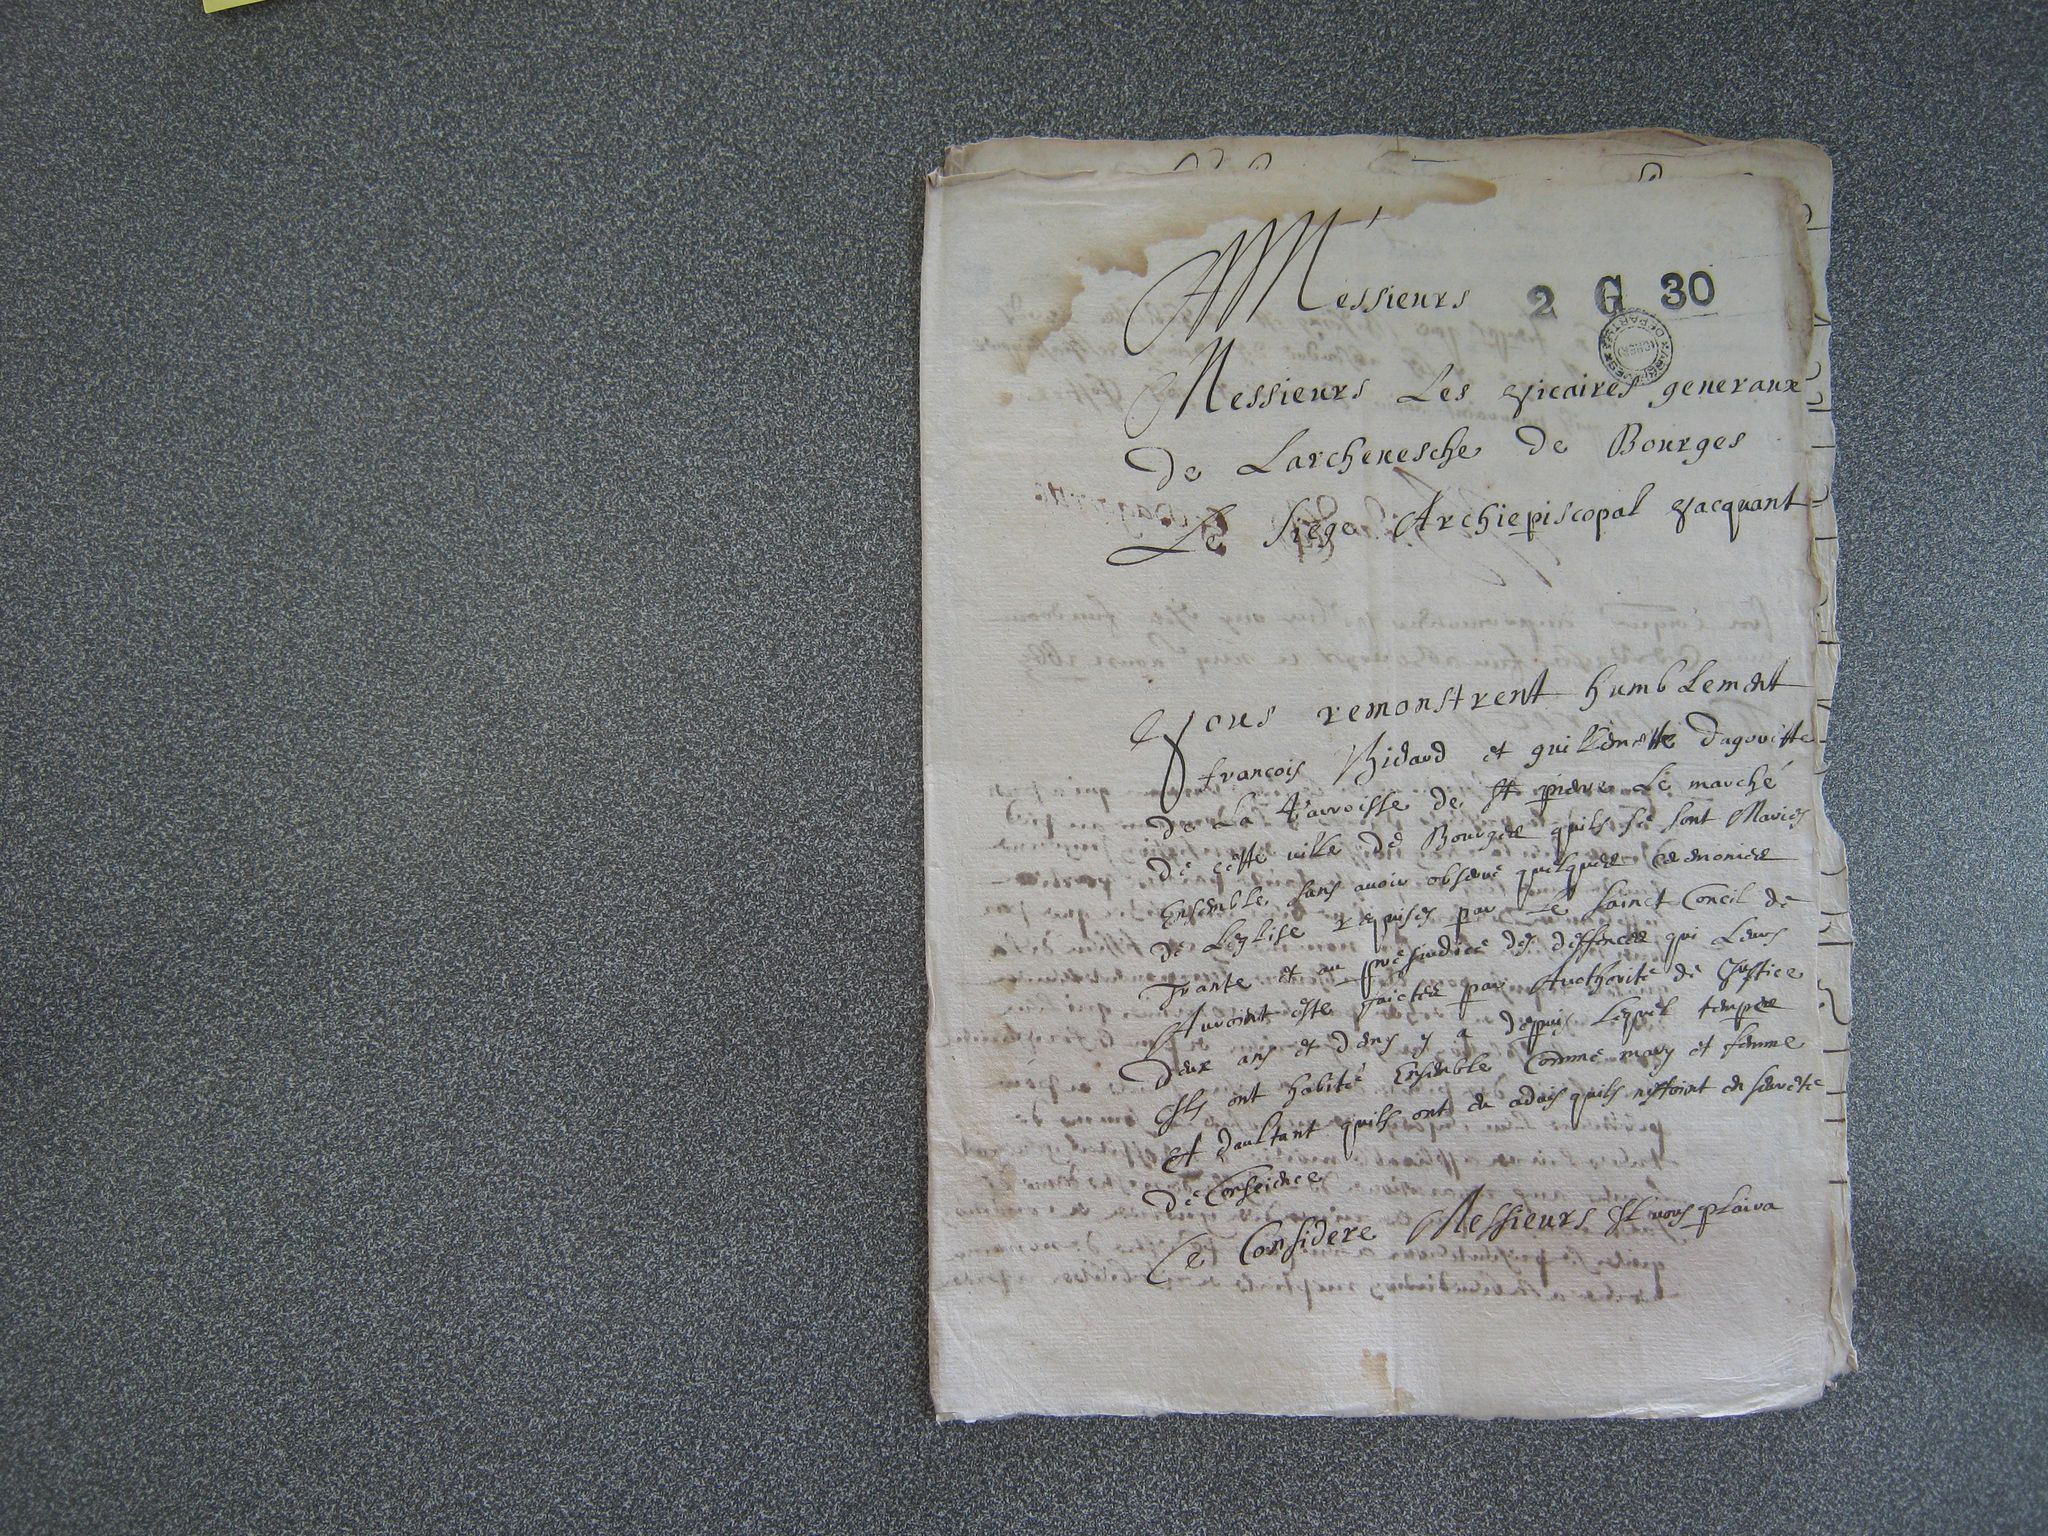 A Messieurs
2 G 30
Messieurs Les vicaires generaux
De Larchevesche De Bourges
Le siege Archiepiscopal vacquant
Vous remonstrent humblement
francois Bidard et guillemette Dagouitte
De La Parroisse de St pierre Le marché
De cette ville De Bourges quils se sont Maries
Ensemble sans avoir observé quelques Ceremonies
De Leglise requises par Le sainct Concil de
Trante et au presiudice des deffences qui Leurs
Auroint esté faictes par Authorité de Justice
Deux ans et demy y a depuis Lequel temps
Ils ont habité Ensemble Comme mary et femme
Et Daultant quils ont eu advis quils nestoint en seureté
De Conscience
Ce Consideré Messieurs Il vous plaira